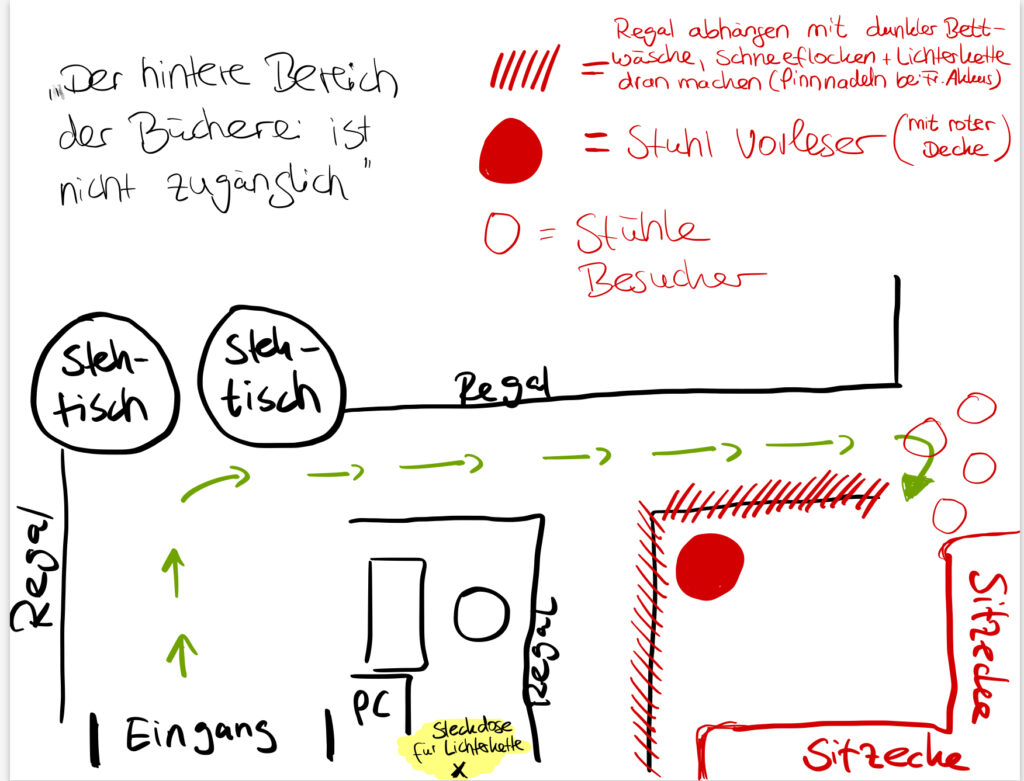 „Der hintere Bereich
der Bücherei ist
nicht zugänglich"
Regal abhängen mit dunkler Bett-
= wäsche, Schneeflocken + Lichterkette
dran machen (Pinnnadeln bei Fr. )
= Stuhl Vorleser (mit roter
Decke)
= Stühle
Besucher
Steh-
tisch
Steh-
tisch
Regal
Regal
Regal
Sitzecke
Eingang
PC
Steckdose
für Lichterkette
x
Sitzecke